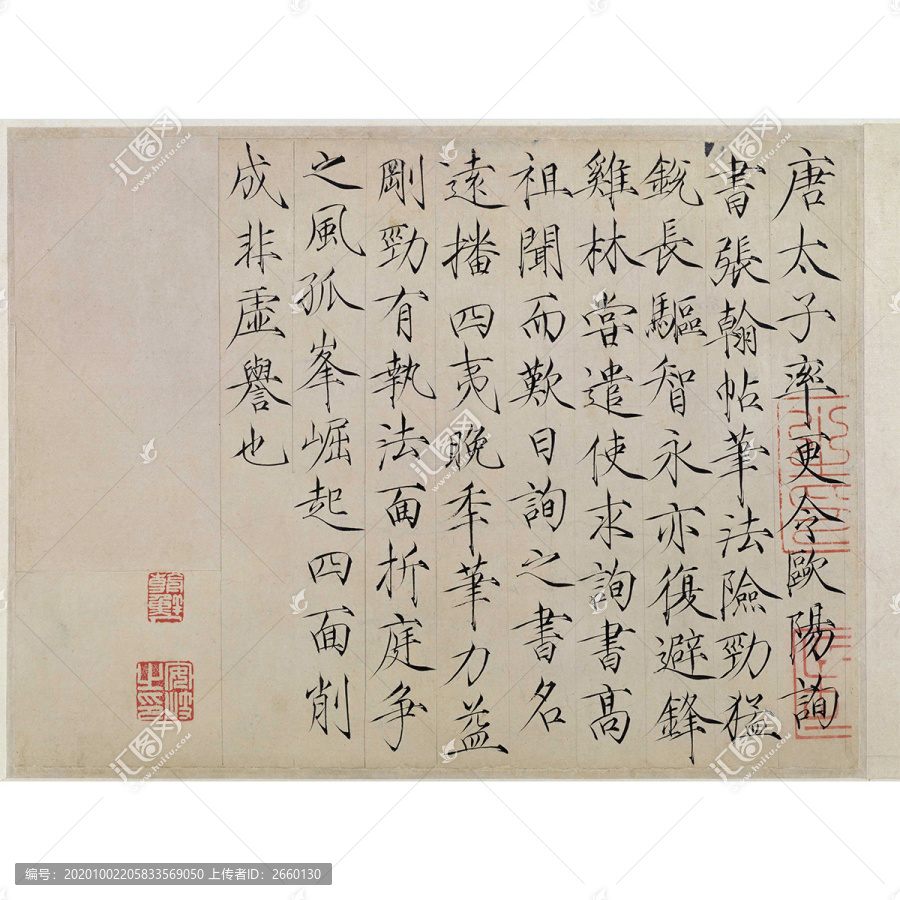 唐太子率更令歐陽詢
書張翰帖筆法險勁猛
銳長驅智永亦復避鋒
雞林嘗遣使求詢書高
祖聞而歎曰詢之書名
遠播四夷晚年筆力益
剛勁有執法面折庭爭
之風孤峯崛起四面削
成非虛譽也
朝鮮
安岐之印
汇图网
www.huitu.com
编号：20201002205833569050 上传者ID：2660130